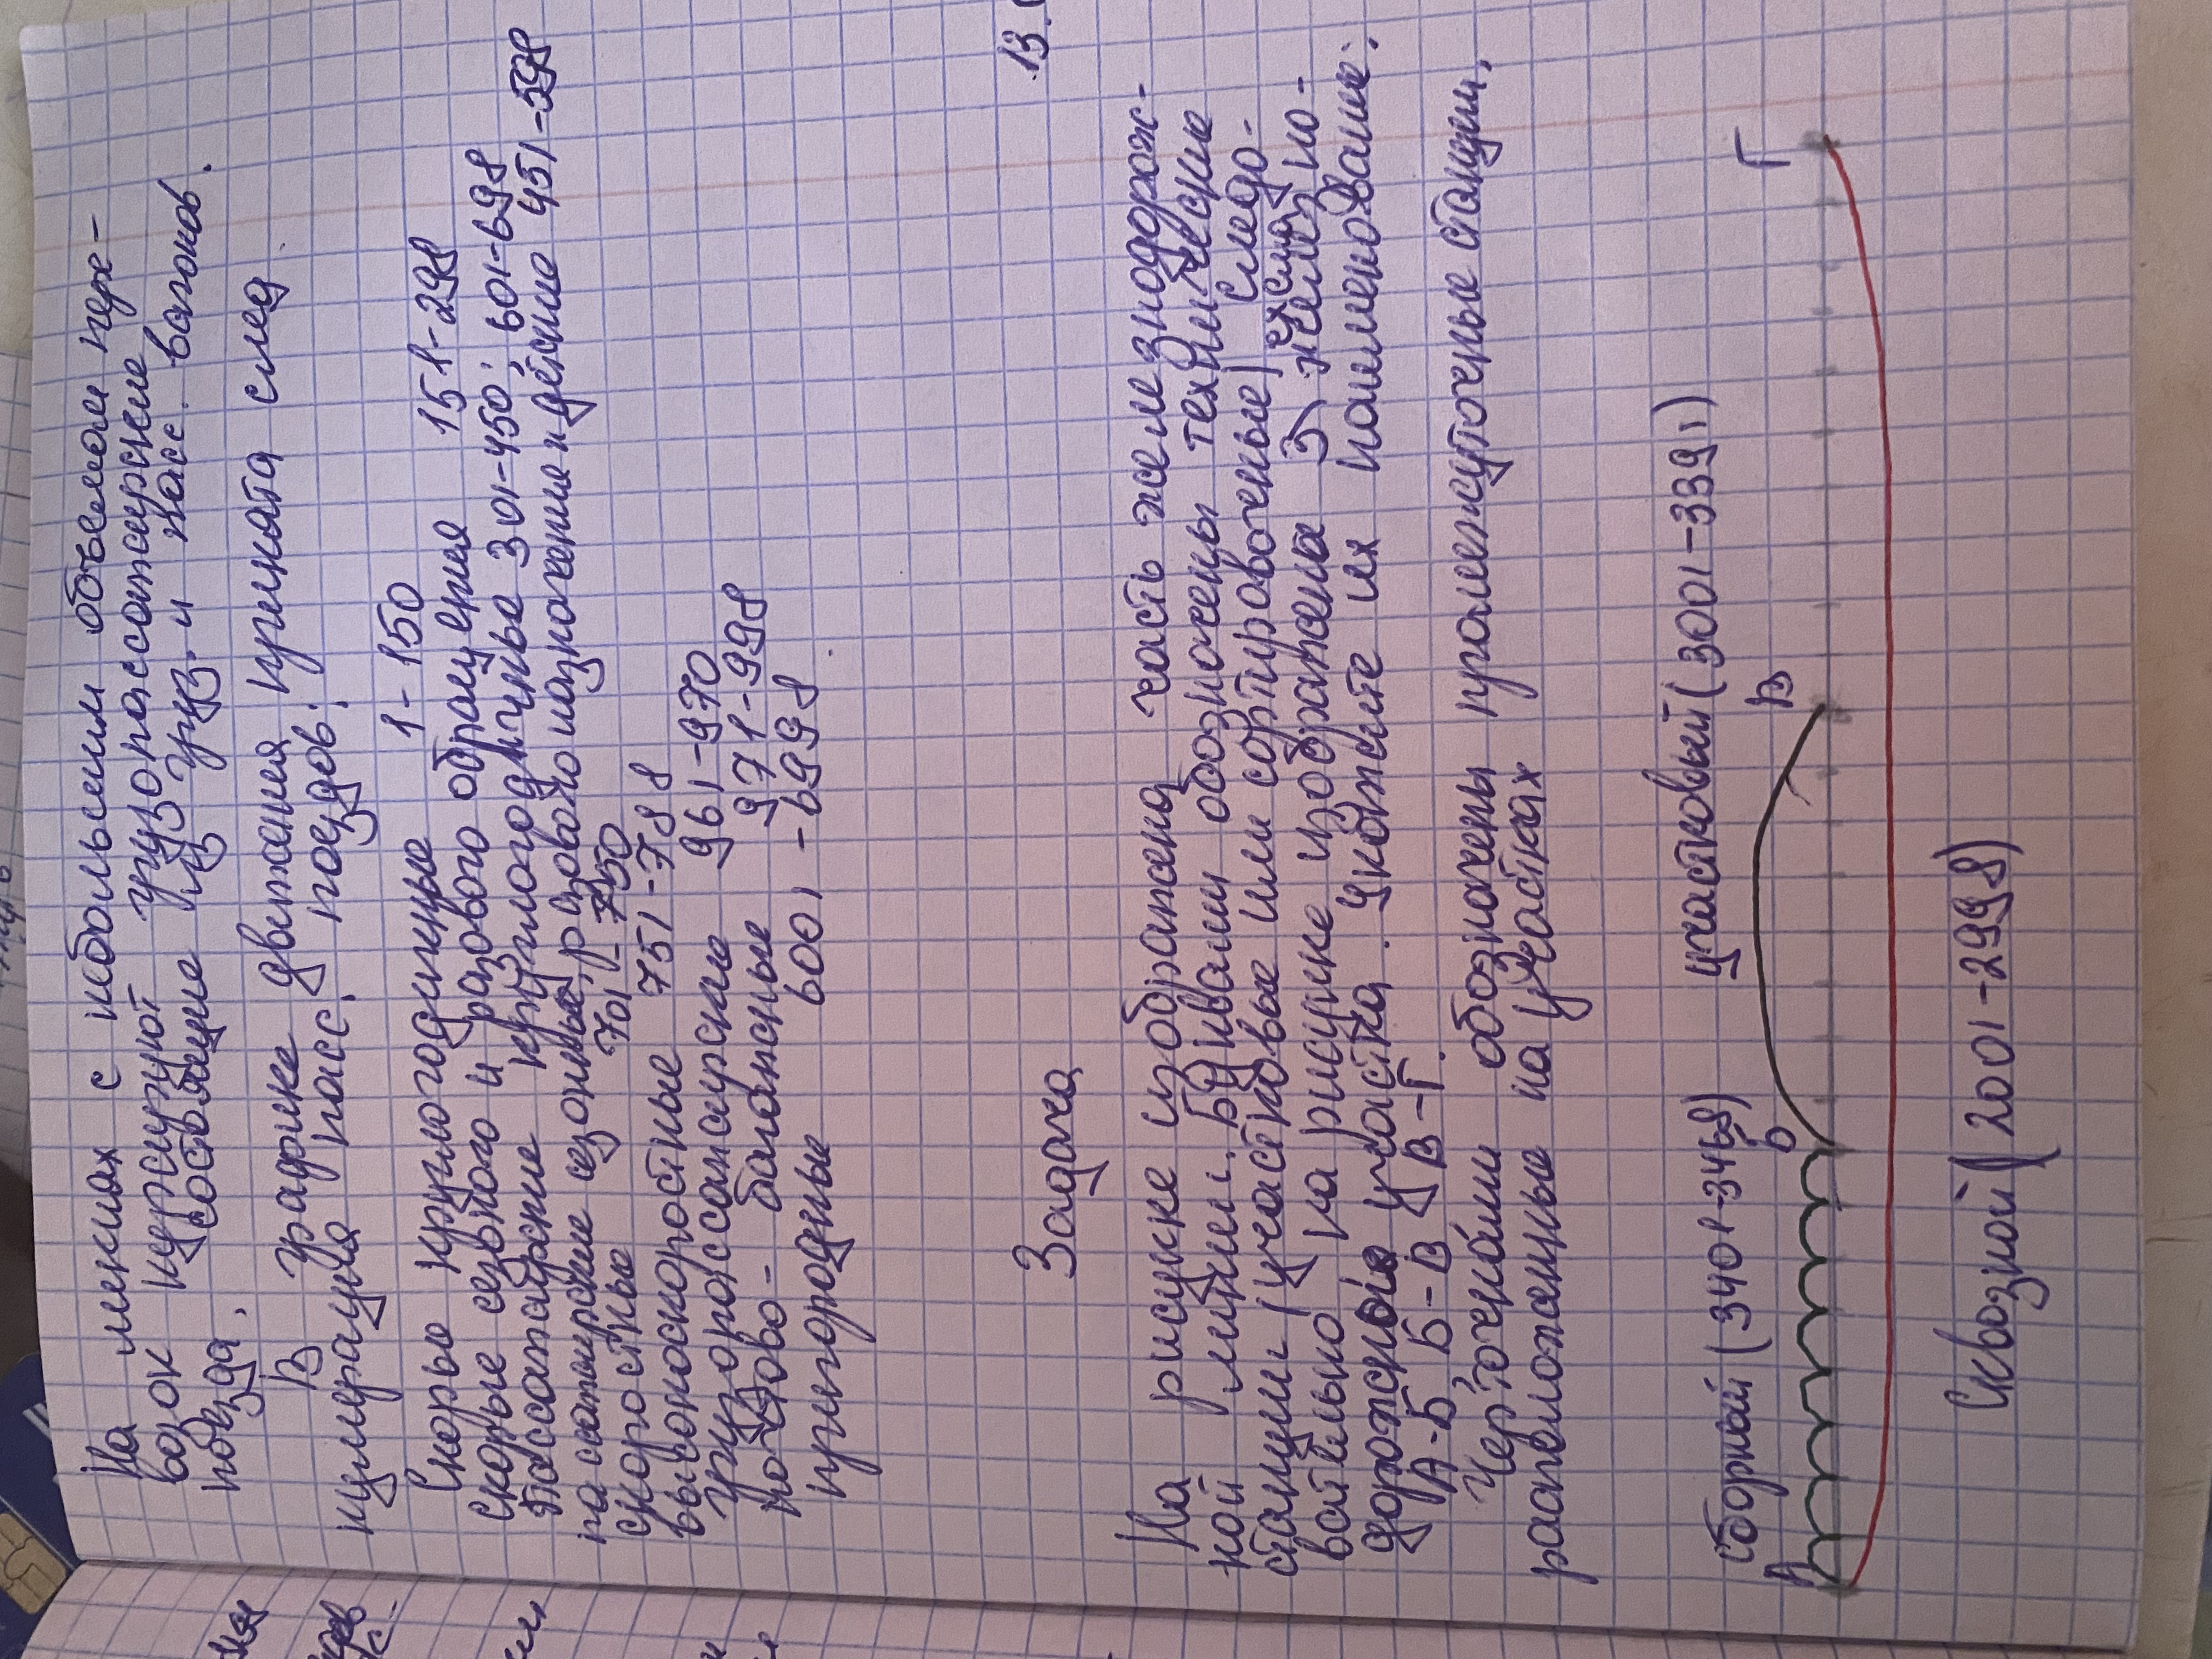 На линиях с небольшим объемом пере-
возок курсируют грузопассажирские
поезда, состоящие из груз. и пасс. вагонов.
В графике движения принята след.
нумерация пасс. поездов:
Скорые круглогодичные 1-150
скорые сезонного и разового обращения 151-298
Пассажирские круглогодичные 301-450; 601-698
пассажирские сезонные, разового назначения и детские 451-598
скоростные 701-750
высокоскоростные 751-788
грузопассажирские 961-970
почтово-багажные 971-998
пригородные 6001-6998
13.
Задача
На рисунке изображена часть железнодорож-
ной линии. Буквами обозначены технические
станции (участковые или сортировочные) Следо-
вательно на рисунке изображена схема 3х железно-
дорожных участка. Укажите их наименование:
А-Б, Б-В, В-Г.
Черточками обозначены промежуточные станции,
расположенные на участках
Сборный (3401-3468) участковый (3001-3391)
А Б В Г
Сквозной (2001-2998)